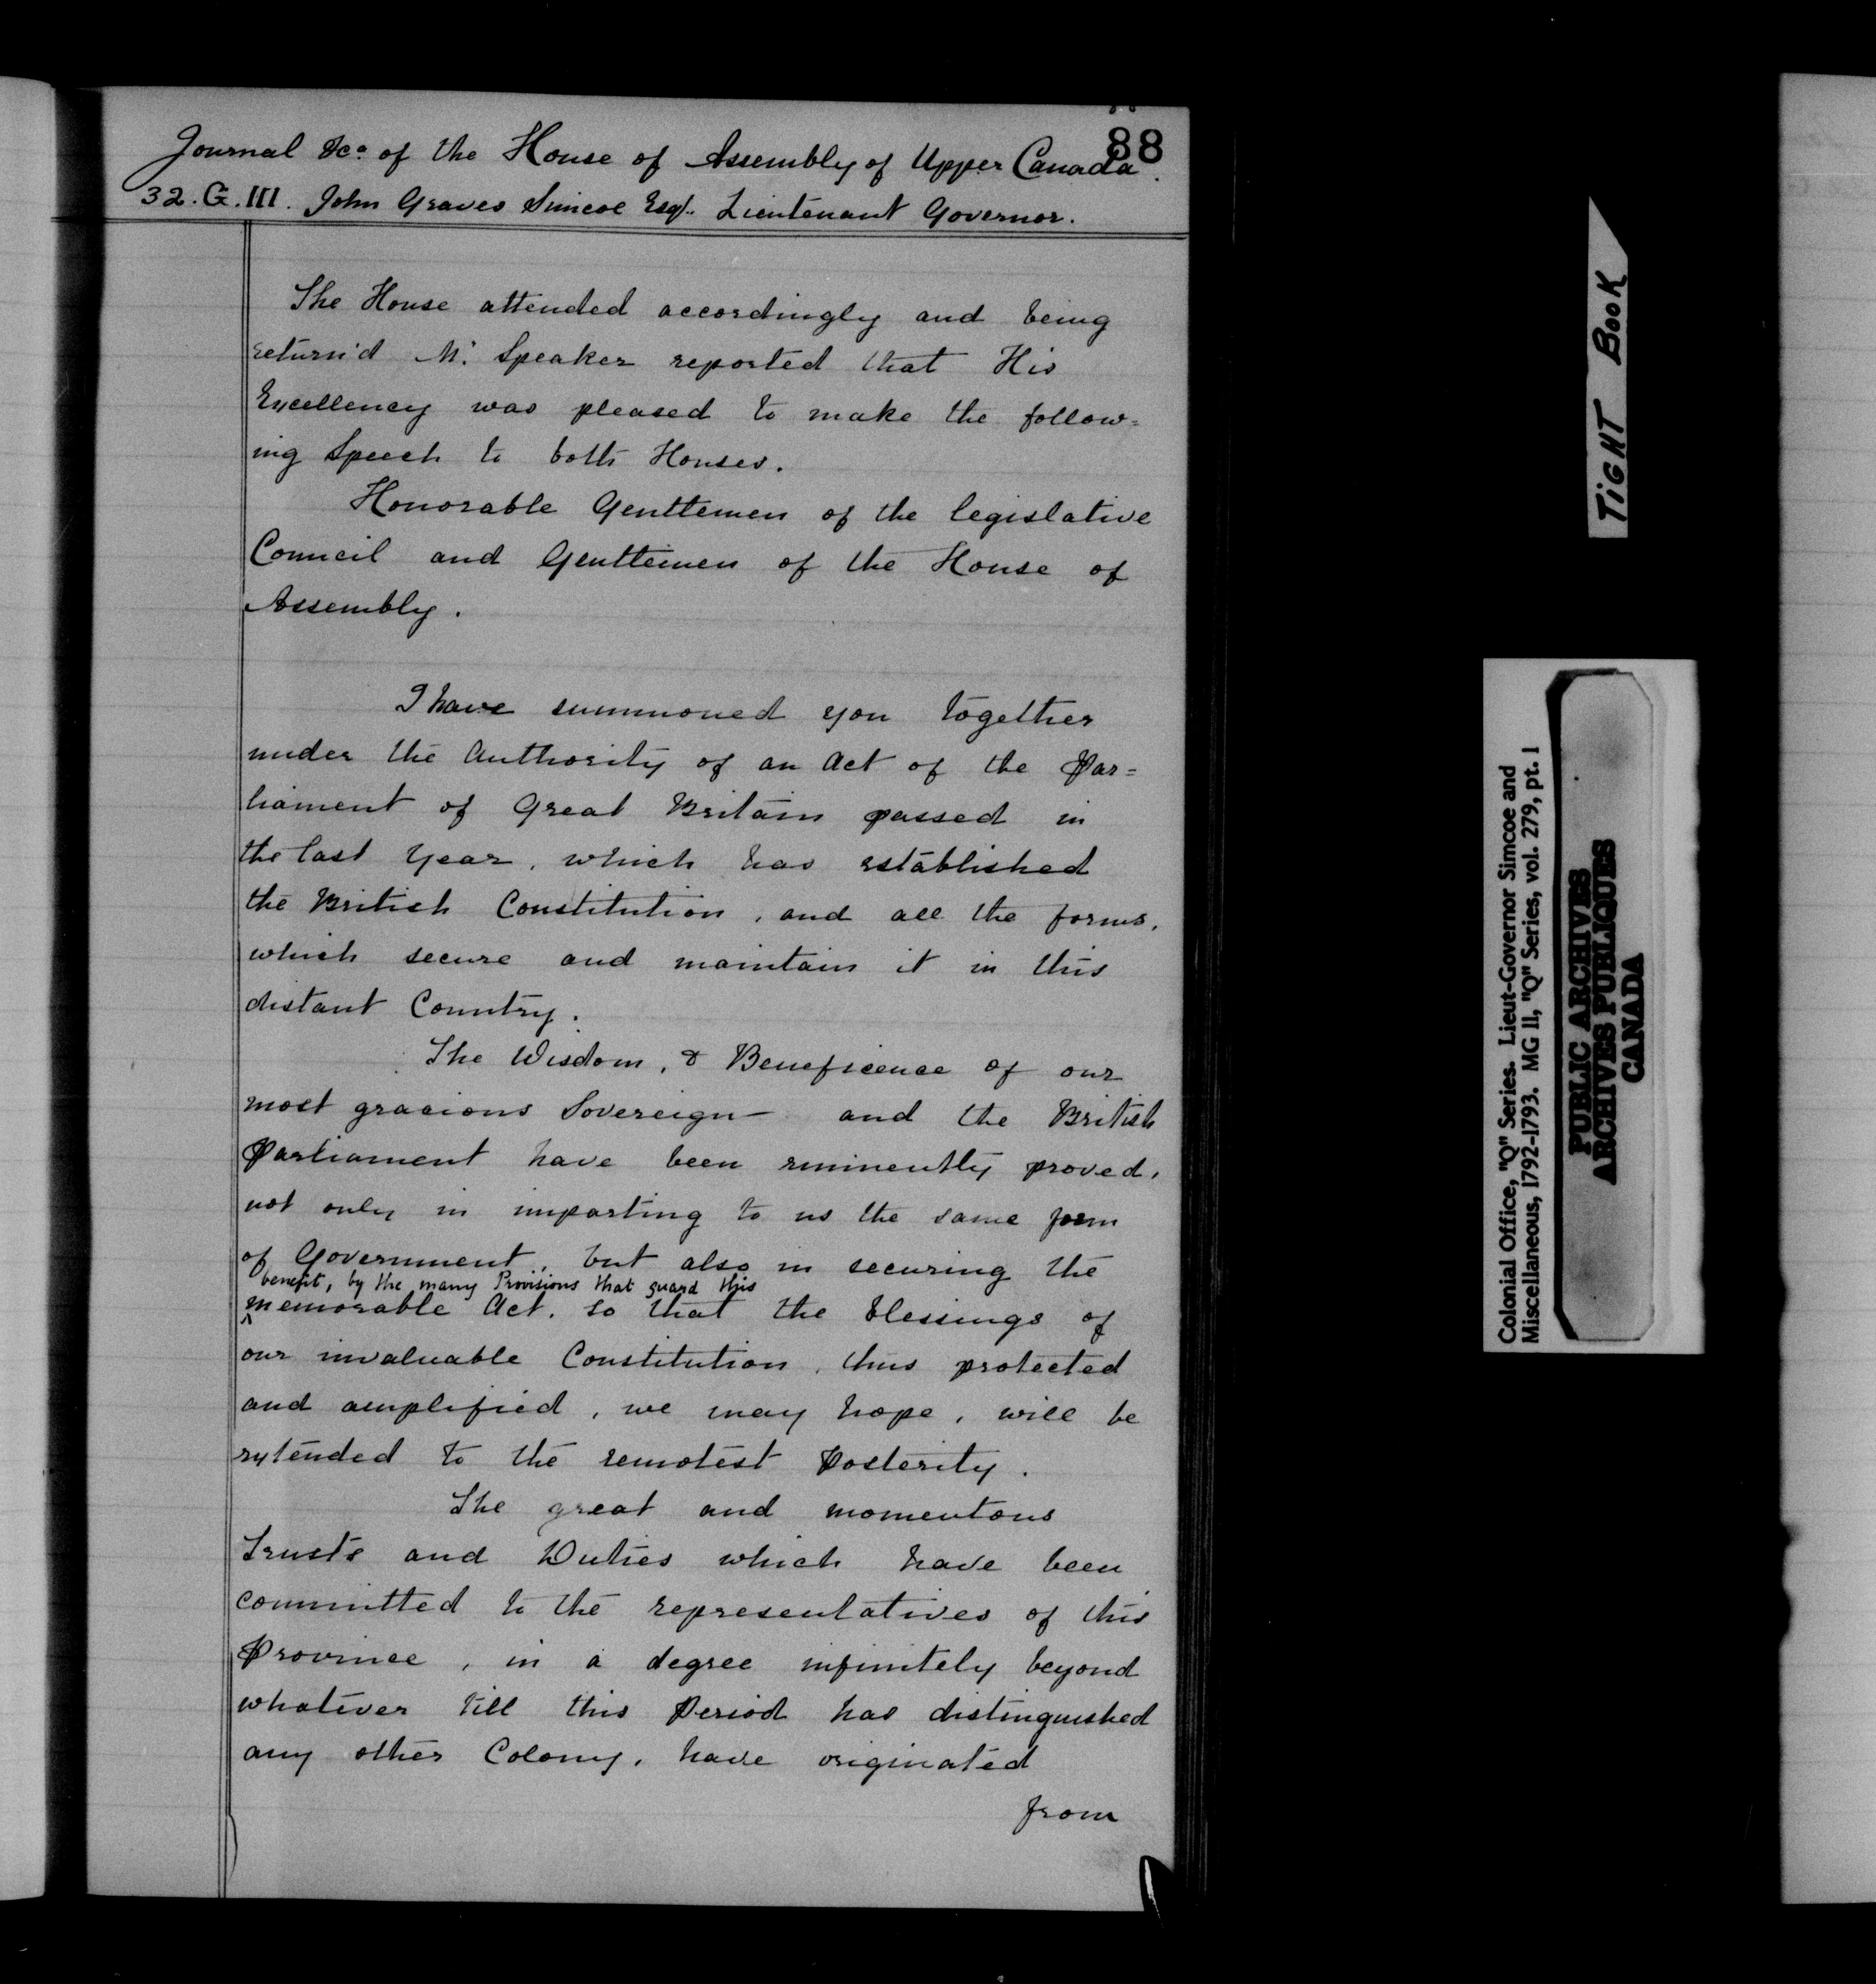 88
Journal &c.a of the House of Assembly of Upper Canada.
32. G. III. John Graves Simcoe Esqr. Lieutenant Governor.
The House attended accordingly and being
return'd Mr. Speaker reported that His
Excellency was pleased to make the follow=
ing Speech to both Houses.
Honorable Gentlemen of the legislative
Council and Gentlemen of the House of
Assembly.
I have summoned you together
under the Authority of an Act of the Par=
liament of Great Britain passed in
the last Year, which has established
the British Constitution, and all the forms,
which secure and maintain it in this
distant Country.
The Wisdom, & Beneficence of our
most gracious Sovereign and the British
Parliament have been eminently proved,
not only in imparting to us the same form
of Government, but also in securing the
benefit, by the many Provisions that guard this
memorable Act, so that the blessings of
our invaluable Constitution, thus protected
and amplified, we may hope, will be
extended to the remotest Posterity.
The great and momentous
Trusts and Duties which have been
committed to the representatives of this
Province, in a degree infinitely beyond
whatever till this Period has distinguished
any other Colony, have originated
from
TIGHT BOOK
Colonial Office, "Q" Series. Lieut-Governor Simcoe and
Miscellaneous, 1792-1793. MG 11, "Q" Series, vol. 279, pt. 1
PUBLIC ARCHIVES
ARCHIVES PUBLIQUES
CANADA